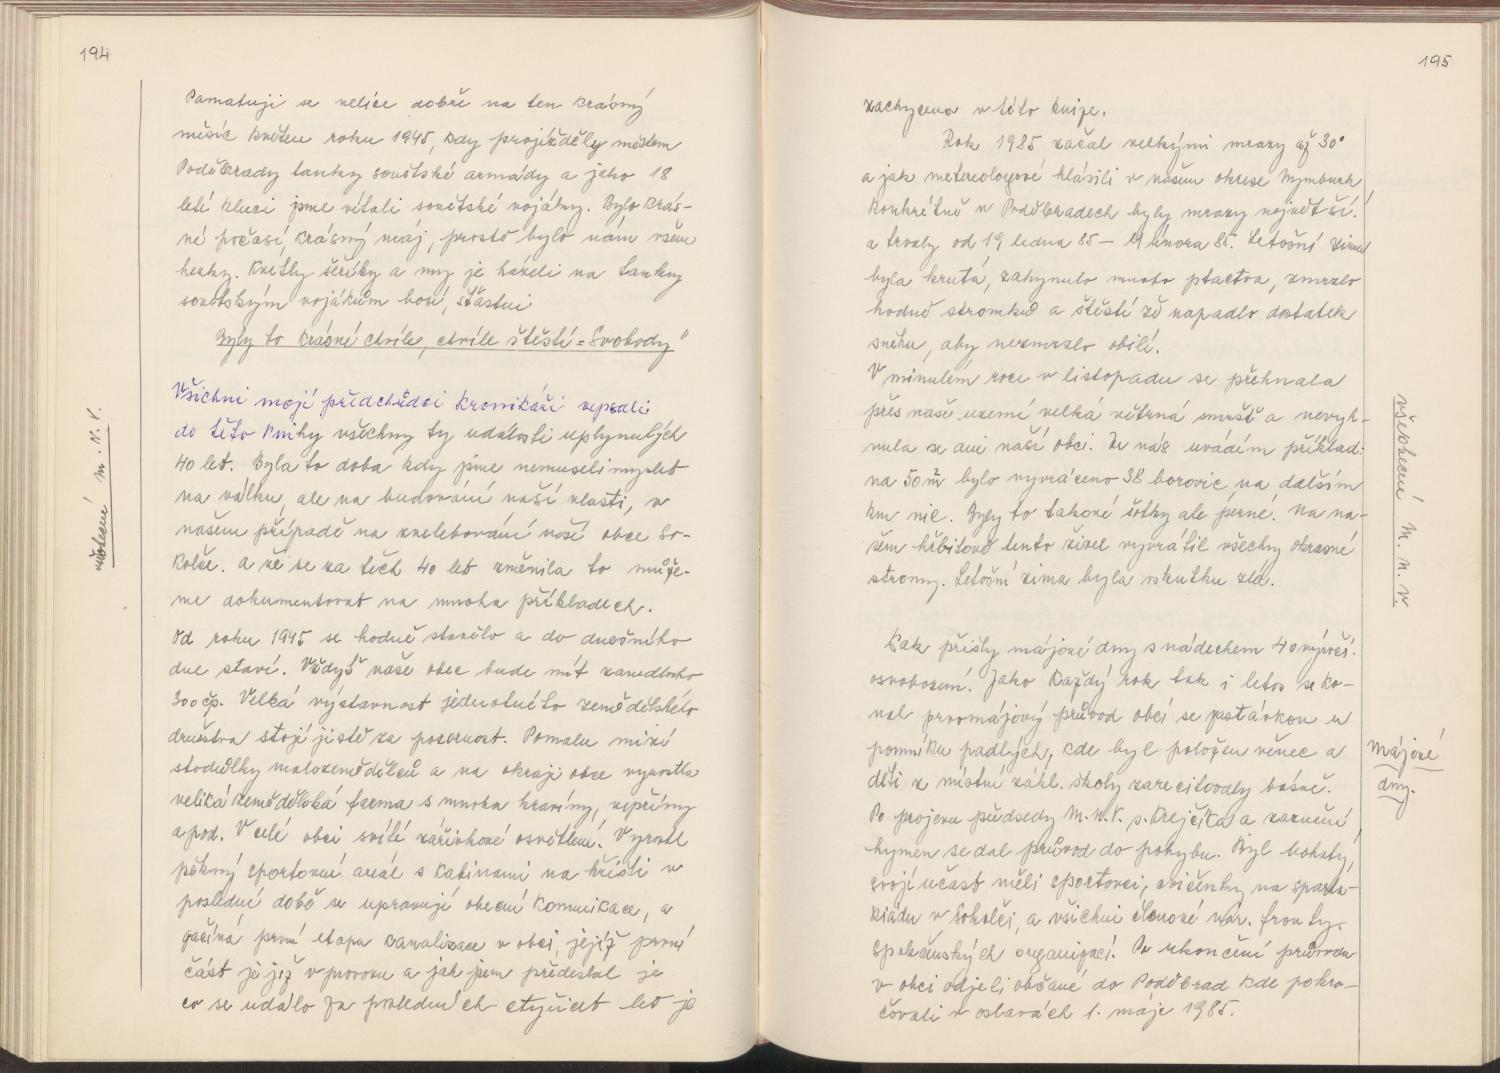 194
Pamatuji se velice dobře na ten krásný
měsíc květen roku 1945, kdy projížděly městem
Poděbrady tanky sovětské armády a jako 18
letí kluci jsme vítali sovětské vojáky. Bylo krás-
né počasí, krásný máj, prostě bylo nám všem
hezky. Kvetly šeříky a my je házeli na tanky
sovětským vojákům boží, šťastni
Byly to krásné chvíle, chvíle štěstí = Svobody"
všeobecné M.N.V.
Všichni moji předchůdci kronikáři vepsali
do této knihy všechny ty události uplynulých
40 let. Byla to doba kdy jsme nemuseli myslet
na válku, ale na budování naší vlasti, v
našem případě na zvelebování naší obce So-
kolče. A že se za těch 40 let změnila to může-
me dokumentovat na mnoha příkladech.
Od roku 1945 se hodně stavělo a do dnešního
dne staví. Vždyť naše obec bude mít zanedlouho
300 čp. Velká výstavnost jednotného zemědělského
družstva stojí jistě za pozornost. Pomalu mizí
stodůlky malozemědělců a na okraji obce vyrostla
veliká zemědělská farma s mnoha kravíny, vepříny
a pod. V celé obci svítí zářivkové osvětlení. Vyrostl
pěkný sportovní areál s kabinami na hřišti v
poslední době se upravují obecní komunikace, a
začíná první etapa kanalizace v obci, jejíž první
část je již v provozu a jak jsem předeslal je
co se událo za posledních čtyřicet let je
195
zachyceno v této knize.
Rok 1985 začal velkými mrazy až 30°
a jak metereologové hlásili v našem okrese Nymburk
konkrétně v Poděbradech byly mrazy největší.
a trvaly od 19 ledna 85 – února 85. Letošní zima
byla krutá, zahynulo mnoho ptactva, zmrzlo
hodně stromků a štěstí že napadlo dostatek
sněhu, aby nezmrzlo obilí.
V minulém roce v listopadu se přehnala
přes naše uzemí velká větrná smršť a nevyh-
nula se ani naší obci. Za nás uvádím příklad:
na 50 m² bylo vyvráceno 38 borovic, na dalším
km nic. Byly to takové šotky ale pérné. Na na-
šem hřbitově tento živel vyvrátil všechny okrasné
stromy. Letošní zima byla vskutku zlá.
všeobecné M.N.V.
Pak přišly májové dny s nádechem 40 výročí.
osvobození. Jako každý rok tak i letos se ko-
nal prvomájový průvod obcí se zastávkou u
pomníku padlých, kde byl položen věnec a
děti z místní zákl. školy zarecitovaly básně.
Májové
dny.
Po projevu předsedy M.N.V. s. Krejčíka a zaznění
hymen se dal průvod do pohybu. Byl bohatý,
svojí učast měli sportovci, cvičenky na sparta-
kiádu v Sokolči, a všichni členové nár. fronty.
společenských organizací. Po ukončení průvodu
v obci odjeli občané do Poděbrad kde pokra-
čovali v oslavách 1. máje 1985.